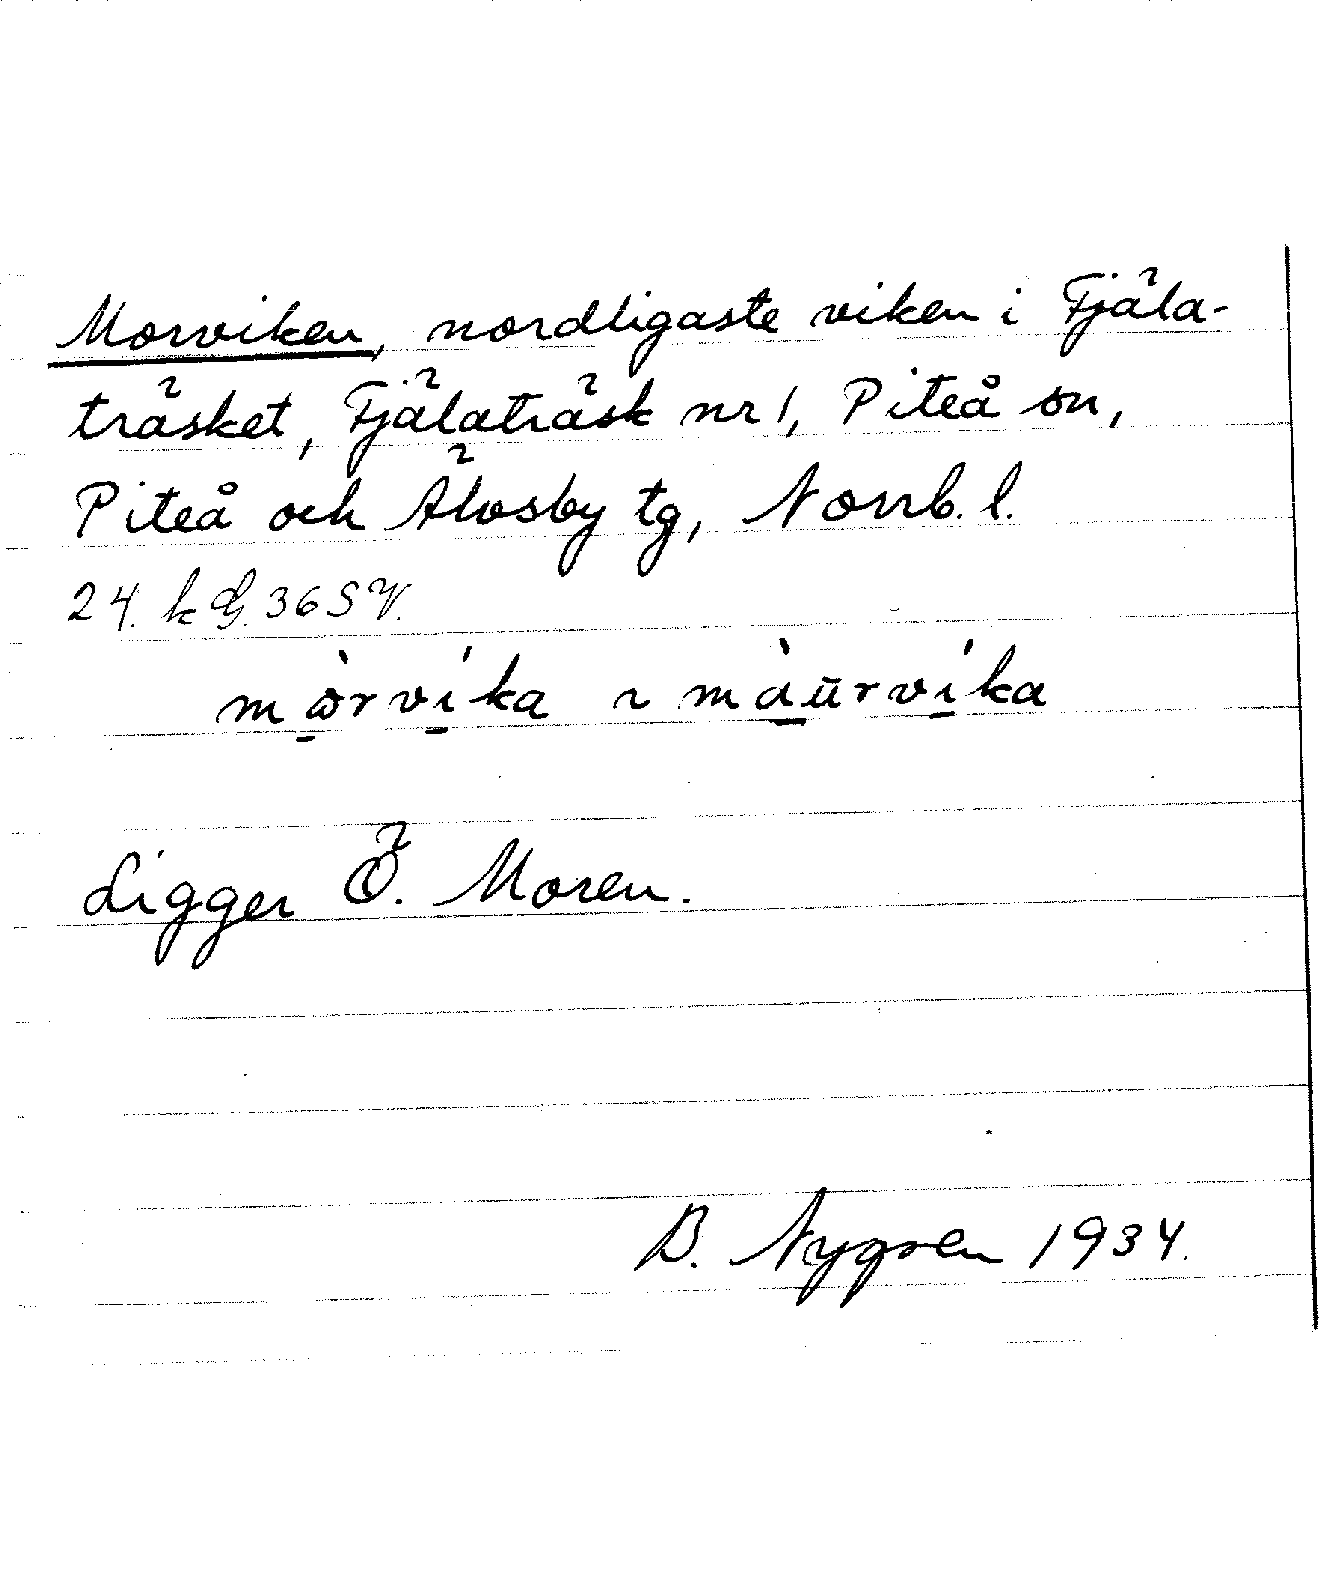 Morviken, nordligaste viken i Fjäla-
träsket, Fjälaträsk nr 1, Piteå sn,
Piteå och Älvsby tg, Norrb. l.
24. k G. 36 SV.
mòrvíka ~ màu̇̄rvíka
Ligger Ö. Moren.
B. Nygren 1934.